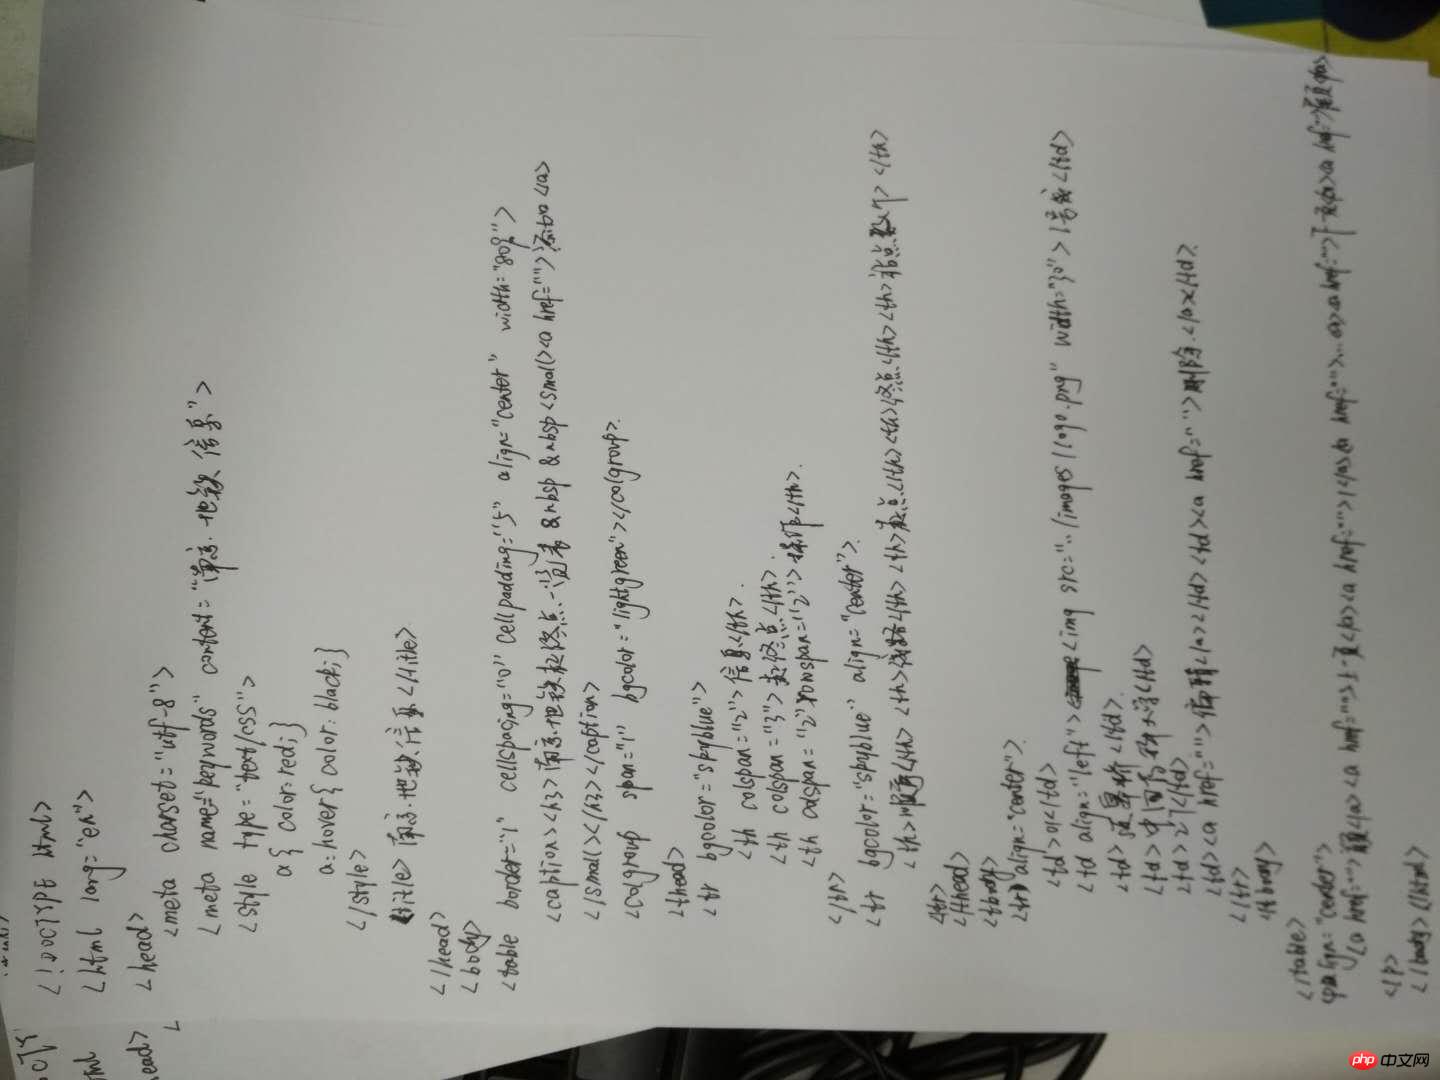 <!DOCTYPE html>
<html lang="en">
<head>
<meta charset="utf-8">
<meta name="keywords" content="南京·地铁信息">
<style type="text/css">
a{ color:red; }
a:hover{ color:black; }
</style>
<title>南京·地铁信息</title>
</head>
<body>
<table border="1" cellspacing="0" cellpadding="5" align="center" width="80%">
<caption><h3>南京·地铁起终点一览表 &nbsp &nbsp<small><a href="">添加<a>
</small></h3></caption>
<colgroup span="1" bgcolor="lightgreen"></colgroup>
<thead>
<tr bgcolor="skyblue">
<th colspan="2">信息</th>
<th colspan="3">起终点</th>
<th colspan="2" rowspan="2">操作</th>
</tr>
<tr bgcolor="skyblue" align="center">
<th>顺序</th><th>线路</th><th>起点</th><th>终点</th><th>站点数</th>
<tr>
</thead>
<tbody>
<tr align="center">
<td>01</td>
<td align="left"><img src="../images/logo.png" width="30">1号线</td>
<td>迈皋桥</td>
<td>中国药科大学</td>
<td>27</td>
<td><a href="">编辑</a></td><td><a href="">删除</a></td>
</tr>
</tbody>
</table>
<p align="center">
<a href="">首页</a><a href="">上一页</a><a href="">1</a><a href="">...</a><a href="">下一页</a><a href="">尾页</a>
</p>
</body></html>
html
ead>
php 中文网